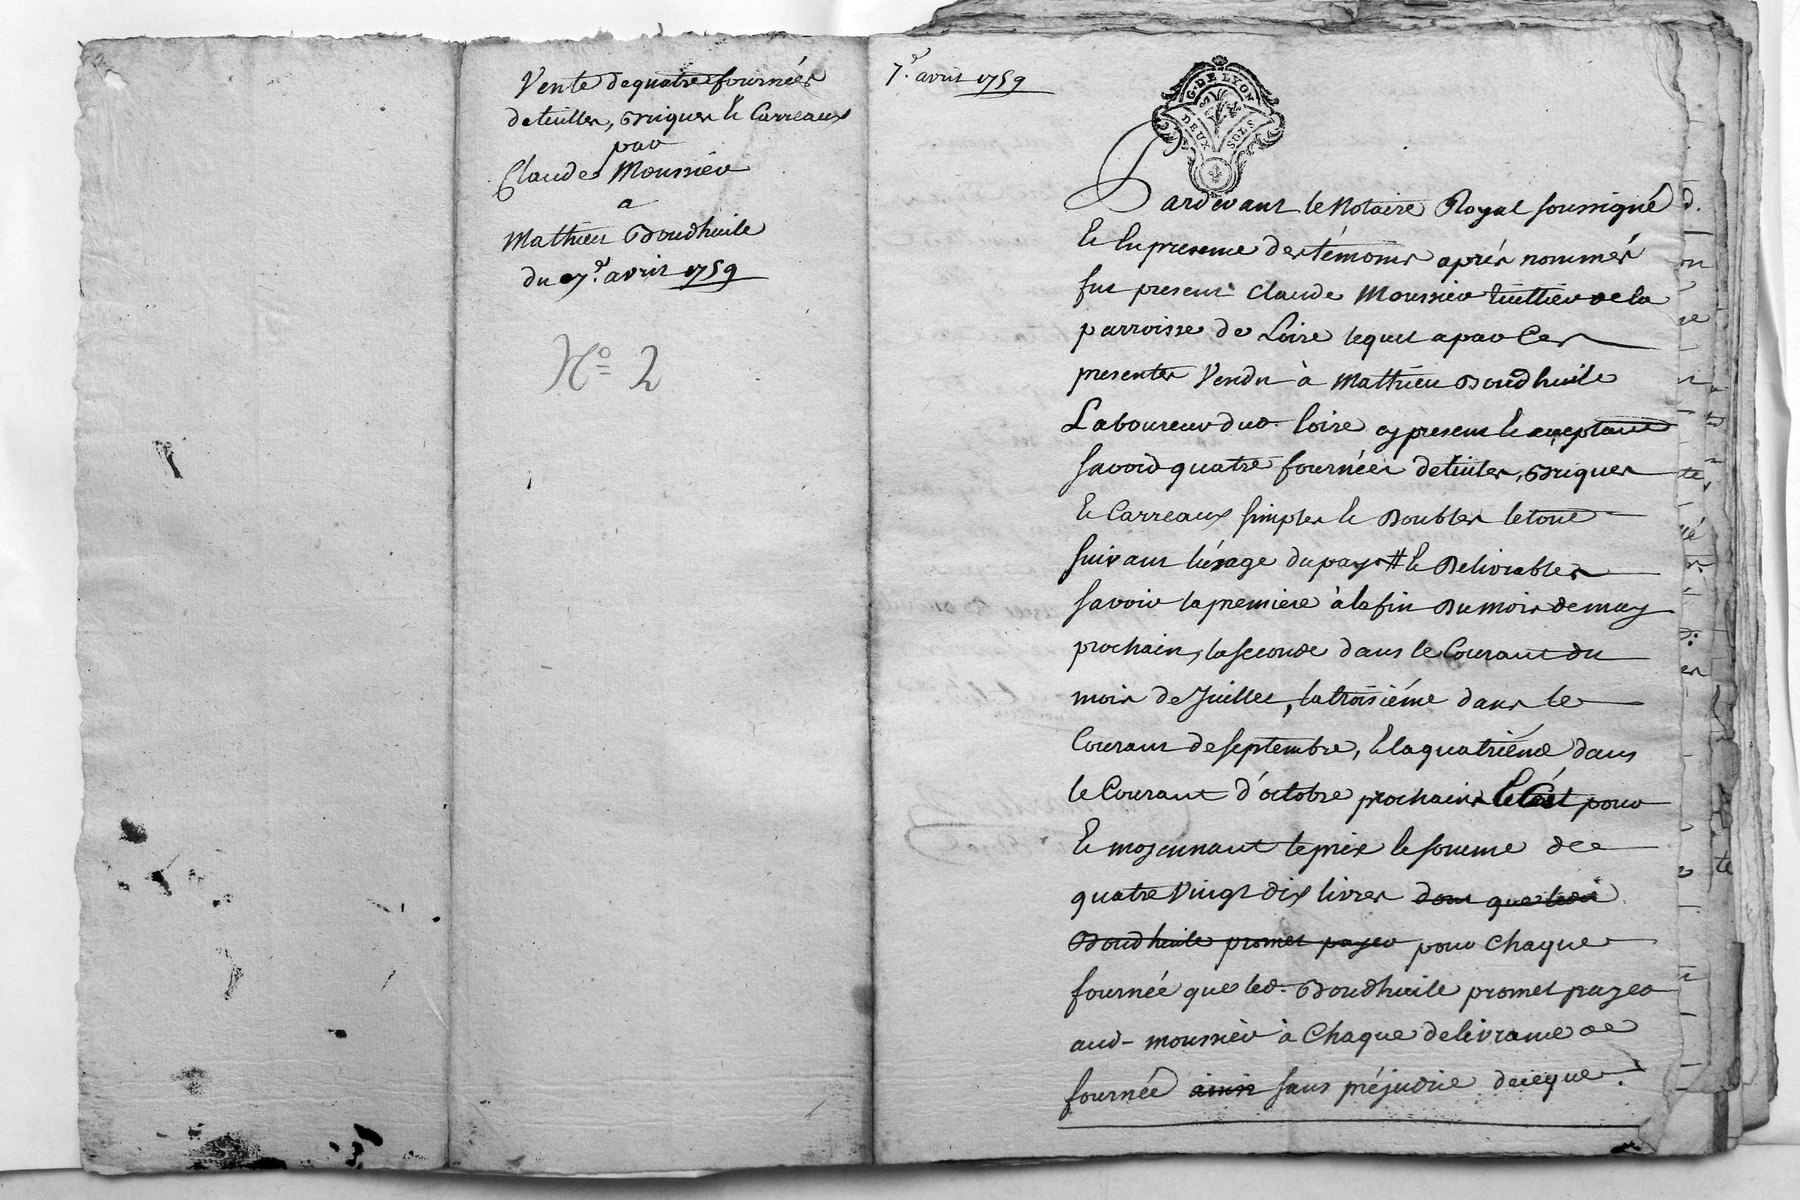 Vente de quatre fournées
de tuilles, Briques & Carreaux
par
Claude Moussier
a
Mathieu Boudhuile
du 7.e avril 1759
No 2
7.e avril 1759
G. DE LYON
DEUX SOLS
Pardevant le Notaire Royal soussigné
& En presence des témoins après nommés
fut present Claude Moussier tuillier de la
parroisse de Loire lequel a par Ces
presentes Vendu à Mathieu Boudhuile
Laboureur dud. Loire cy present & acceptant
savoir quatre fournées de tuiles, Briques
& Carreaux simples & Doubles le tout
suivant l'usage du pays # & Delivrables
savoir la premiere à la fin Du mois de may
prochain, la seconde dans le Courant du
mois de Juillet, la troisiéme dans le
Courant de septembre, & la quatriéme dans
le Courant d'octobre prochains pour
& moyennant le prix & somme de
quatre Vingt dix livres dont que led.
Boudhuile promet payer pour Chaque
fournée que led. Boudhuile promet payer
aud. moussier à Chaque delivrance de
fournée ainsi sans préjudice de ce que